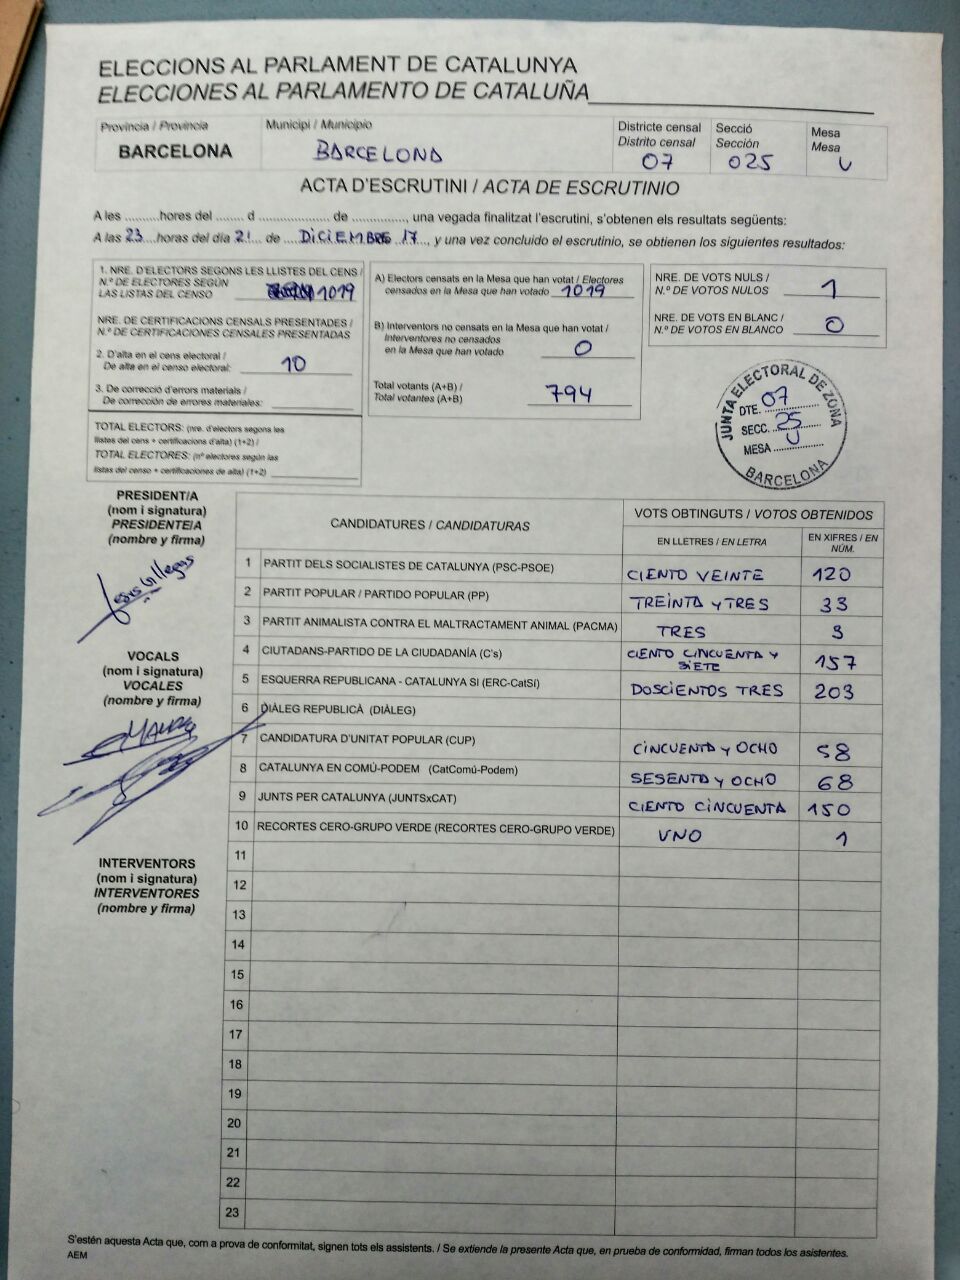 ELECCIONS AL PARLAMENT DE CATALUNYA
ELECCIONES AL PARLAMENTO DE CATALUÑA
Província / Provincia
BARCELONA
Municipi / Municipio
BARCELONA
Districte censal
Distrito censal
07
Secció
Sección
025
Mesa
Mesa
U
ACTA D'ESCRUTINI / ACTA DE ESCRUTINIO
A les ..........hores del ........ d ..................... de ..............., una vegada finalitzat l'escrutini, s'obtenen els resultats següents:
A las 23 horas del día 21 de DICIEMBRE 17, y una vez concluido el escrutinio, se obtienen los siguientes resultados:
1. NRE. D'ELECTORS SEGONS LES LLISTES DEL CENS /
N.º DE ELECTORES SEGÚN
LAS LISTAS DEL CENSO 1019
NRE. DE CERTIFICACIONS CENSALS PRESENTADES /
N.º DE CERTIFICACIONES CENSALES PRESENTADAS
2. D'alta en el cens electoral /
De alta en el censo electoral: 10
3. De correcció d'errors materials /
De corrección de errores materiales:
TOTAL ELECTORS: (nre. d'electors segons les
llistes del cens + certificacions d'alta) (1+2) /
TOTAL ELECTORES: (nº electores según las
listas del censo + certificaciones de alta) (1+2)
A) Electors censats en la Mesa que han votat / Electores
censados en la Mesa que han votado 1019
B) Interventors no censats en la Mesa que han votat /
Interventores no censados
en la Mesa que han votado 0
Total votants (A+B) /
Total votantes (A+B) 794
NRE. DE VOTS NULS /
N.º DE VOTOS NULOS 1
NRE. DE VOTS EN BLANC /
N.º DE VOTOS EN BLANCO 0
JUNTA ELECTORAL DE ZONA
DTE. 07
SECC. 25
MESA U
BARCELONA
PRESIDENT/A
(nom i signatura)
PRESIDENTE/A
(nombre y firma)
VOCALS
(nom i signatura)
VOCALES
(nombre y firma)
INTERVENTORS
(nom i signatura)
INTERVENTORES
(nombre y firma)
CANDIDATURES / CANDIDATURAS
VOTS OBTINGUTS / VOTOS OBTENIDOS
EN LLETRES / EN LETRA
EN XIFRES / EN NÚM.
1 PARTIT DELS SOCIALISTES DE CATALUNYA (PSC-PSOE) CIENTO VEINTE 120
2 PARTIT POPULAR / PARTIDO POPULAR (PP) TREINTA Y TRES 33
3 PARTIT ANIMALISTA CONTRA EL MALTRACTAMENT ANIMAL (PACMA) TRES 3
4 CIUTADANS-PARTIDO DE LA CIUDADANÍA (C's) CIENTO CINCUENTA Y SIETE 157
5 ESQUERRA REPUBLICANA - CATALUNYA SÍ (ERC-CatSí) DOSCIENTOS TRES 203
6 DIÀLEG REPUBLICÀ (DIÀLEG)
7 CANDIDATURA D'UNITAT POPULAR (CUP) CINCUENTA Y OCHO 58
8 CATALUNYA EN COMÚ-PODEM (CatComú-Podem) SESENTA Y OCHO 68
9 JUNTS PER CATALUNYA (JUNTSxCAT) CIENTO CINCUENTA 150
10 RECORTES CERO-GRUPO VERDE (RECORTES CERO-GRUPO VERDE) UNO 1
11
12
13
14
15
16
17
18
19
20
21
22
23
S'estén aquesta Acta que, com a prova de conformitat, signen tots els assistents. / Se extiende la presente Acta que, en prueba de conformidad, firman todos los asistentes.
AEM